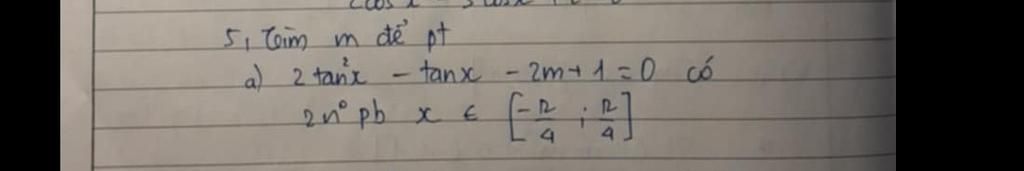 5, Tìm m để pt
a) 2 tan²x - tanx - 2m + 1 = 0 có
2n° pb x ∈ [-π/4 ; π/4]